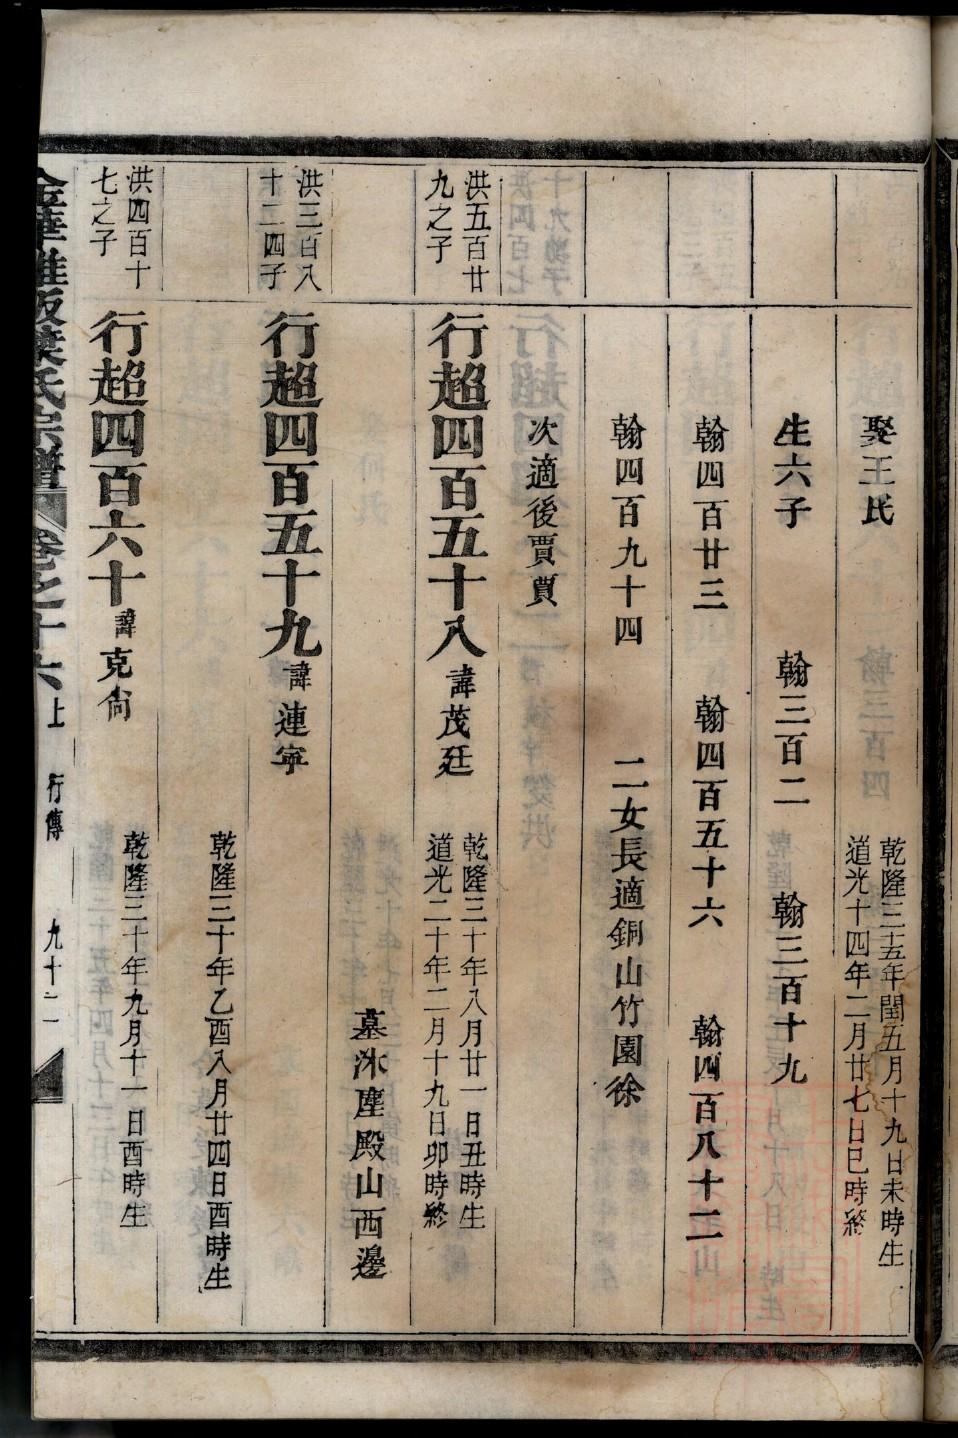 娶王氏
乾隆三十五年閏五月十九日未時生
道光十四年二月廿七日巳時終
生六子 翰三百二 翰三百十九
翰四百廿三 翰四百五十六 翰四百八十二
翰四百九十四 二女長適銅山竹園徐
次適後賈賈
洪五百廿
九之子
行超四百五十八 諱茂廷
乾隆三十年八月廿一日丑時生
道光二十年二月十九日卯時終
墓沐塵殿山西邊
洪三百八
十二四子
行超四百五十九 諱連寧
乾隆三十年乙酉八月廿四日酉時生
洪四百十
七之子
行超四百六十 諱克尚
乾隆三十年九月十一日酉時生
氏宗譜 卷之十六上 行傳 九十二